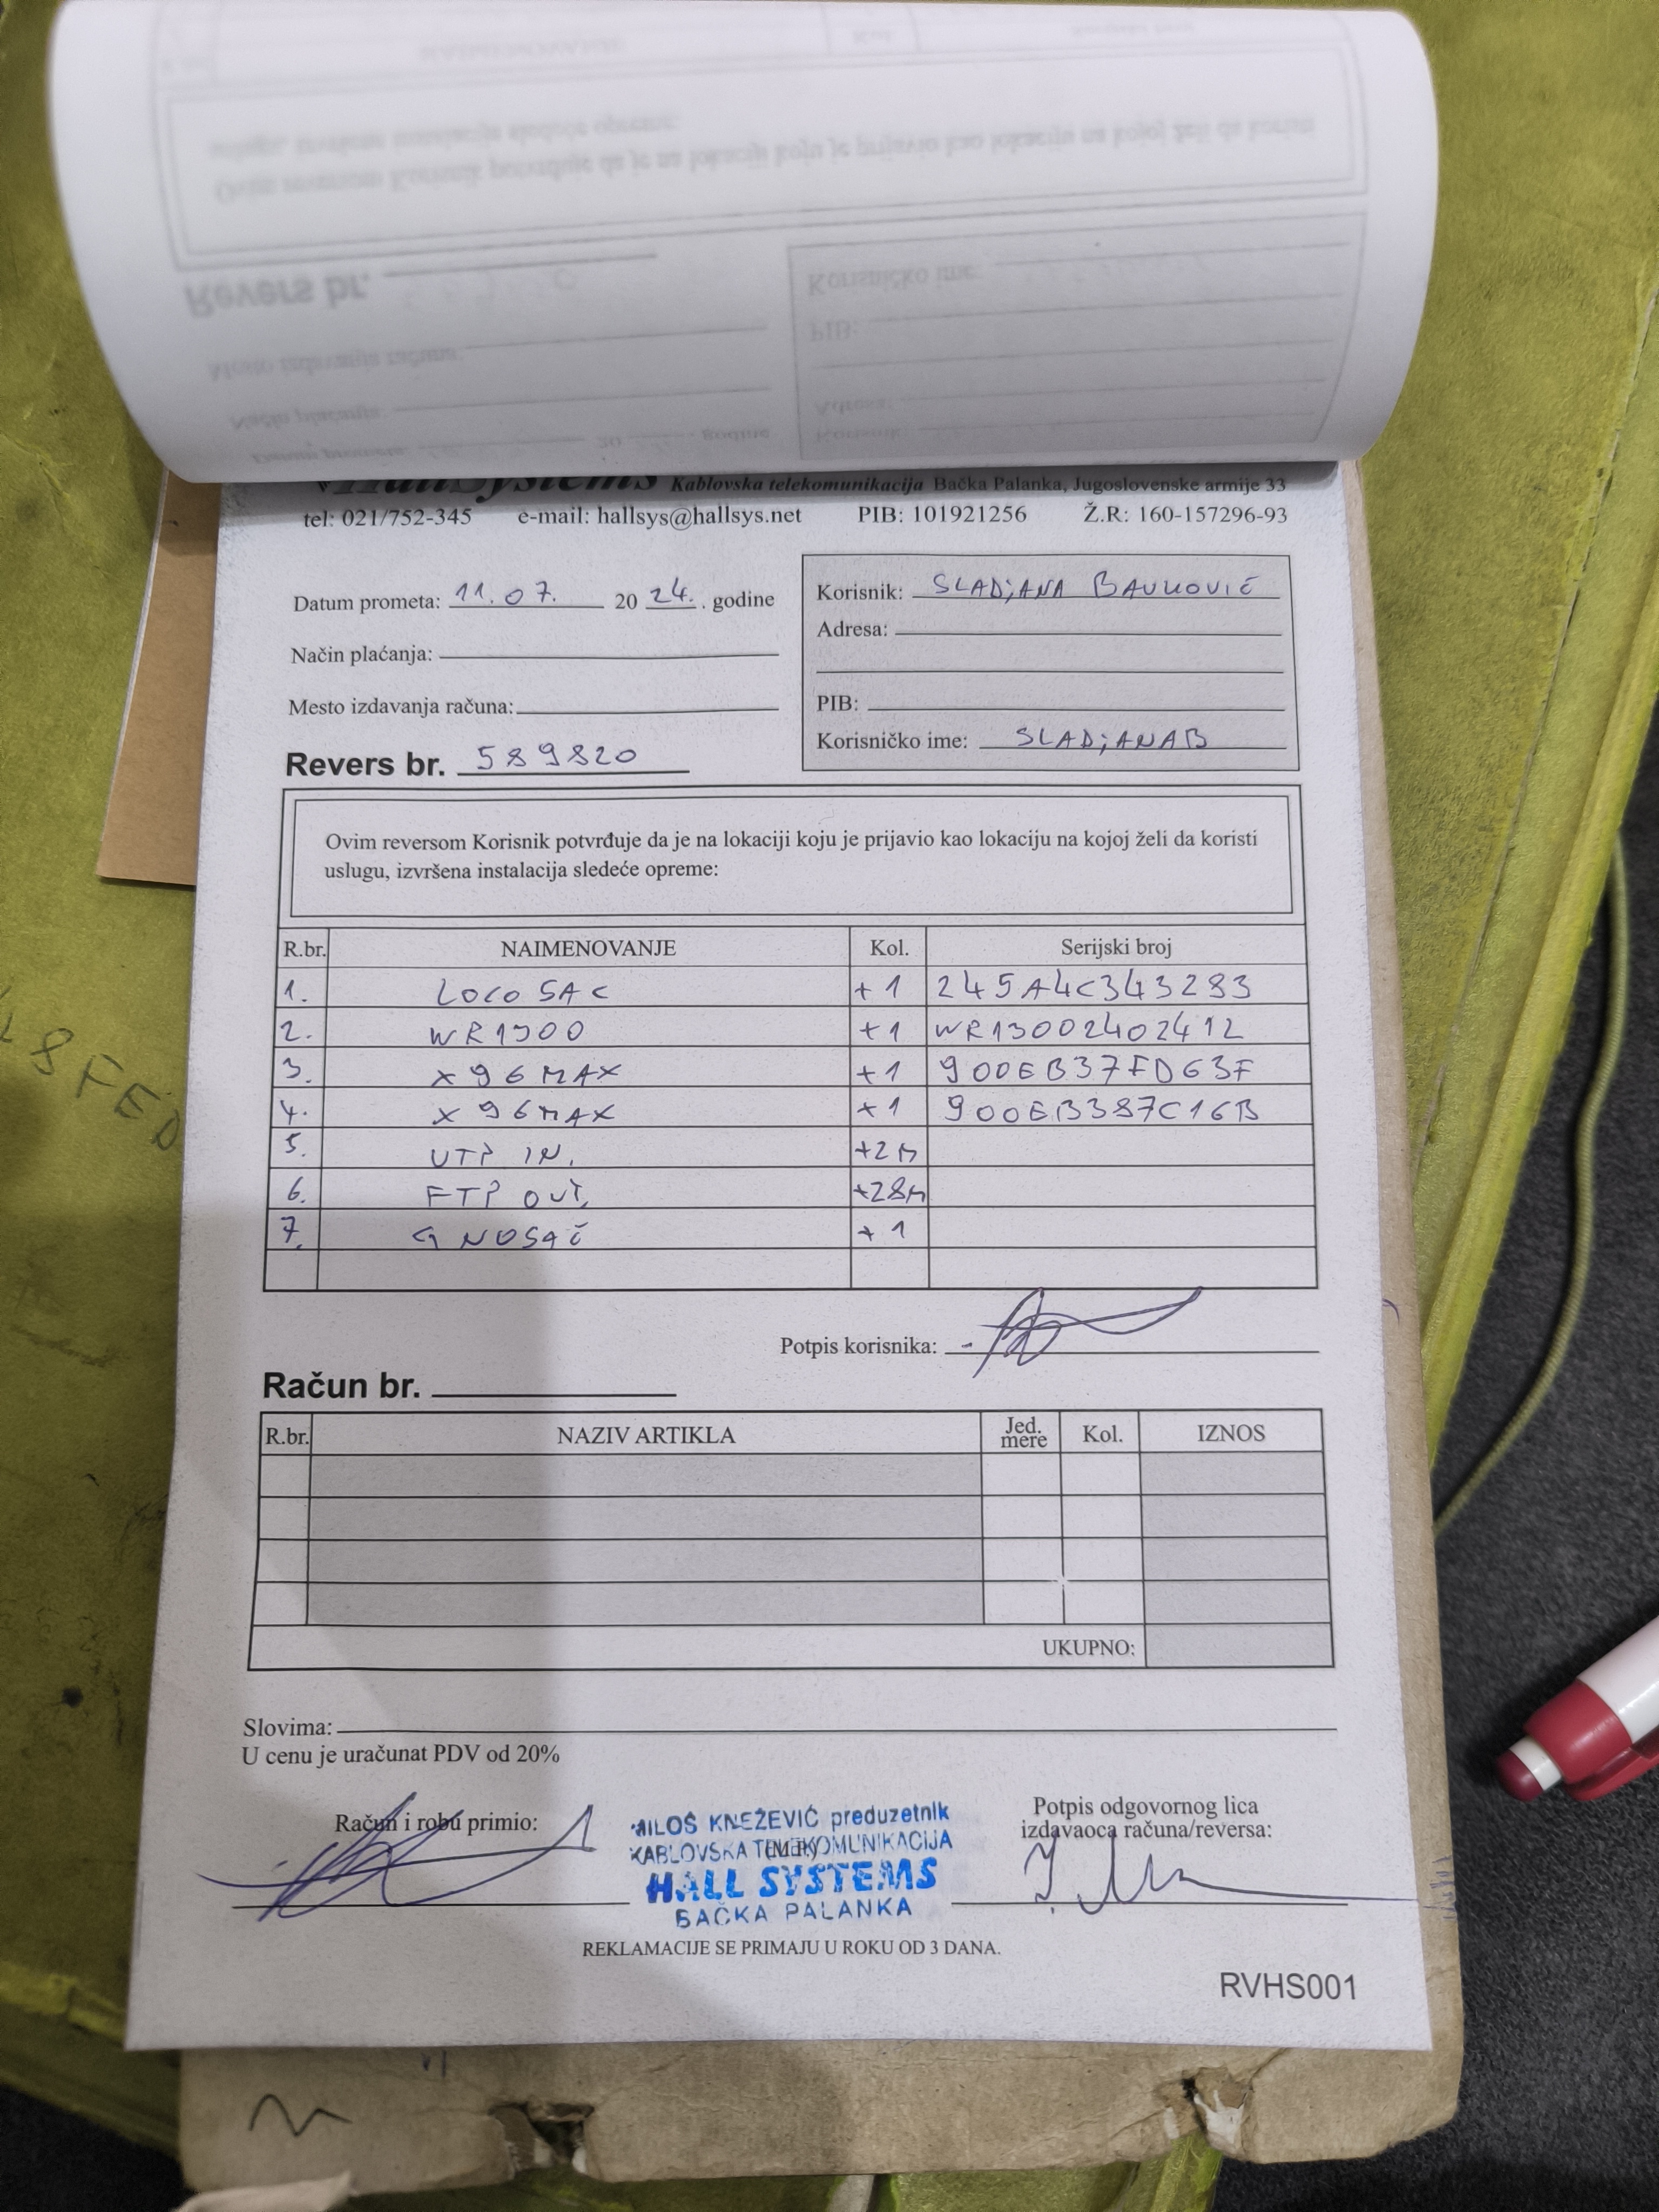 HallSystems Kablovska telekomunikacija Bačka Palanka, Jugoslovenske armije 33
tel: 021/752-345 e-mail: hallsys@hallsys.net PIB: 101921256 Ž.R: 160-157296-93
Datum prometa: 11.07. 20 24. . godine
Način plaćanja:
Mesto izdavanja računa:
Revers br. 589820
Korisnik: SLADJANA BAUKOVIĆ
Adresa:
PIB:
Korisničko ime: SLADJANAB
Ovim reversom Korisnik potvrđuje da je na lokaciji koju je prijavio kao lokaciju na kojoj želi da koristi
uslugu, izvršena instalacija sledeće opreme:
R.br. NAIMENOVANJE Kol. Serijski broj
1. LOCO 5AC +1 245A4C343283
2. WR1300 +1 WR13002402412
3. X96MAX +1 900EB37FD63F
4. X96MAX +1 900EB387C16B
5. UTP IN. +2M
6. FTP OUT. +28M
7. G NOSAČ +1
Potpis korisnika:
Račun br.
R.br. NAZIV ARTIKLA Jed. mere Kol. IZNOS
UKUPNO:
Slovima:
U cenu je uračunat PDV od 20%
Račun i robu primio:
MILOŠ KNEŽEVIĆ preduzetnik
KABLOVSKA TELEKOMUNIKACIJA
(M.P.)
HALL SYSTEMS
BAČKA PALANKA
Potpis odgovornog lica
izdavaoca računa/reversa:
REKLAMACIJE SE PRIMAJU U ROKU OD 3 DANA.
RVHS001